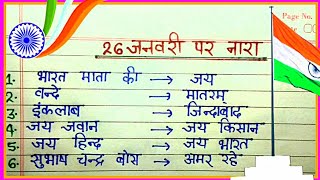 Page No.
26 जनवरी पर नारा
1. भारत माता की → जय
2. वन्दे → मातरम्
3. इंकलाब → जिन्दाबाद
4. जय जवान → जय किसान
5. जय हिन्द → जय भारत
6. सुभाष चन्द्र बोस → अमर रहे